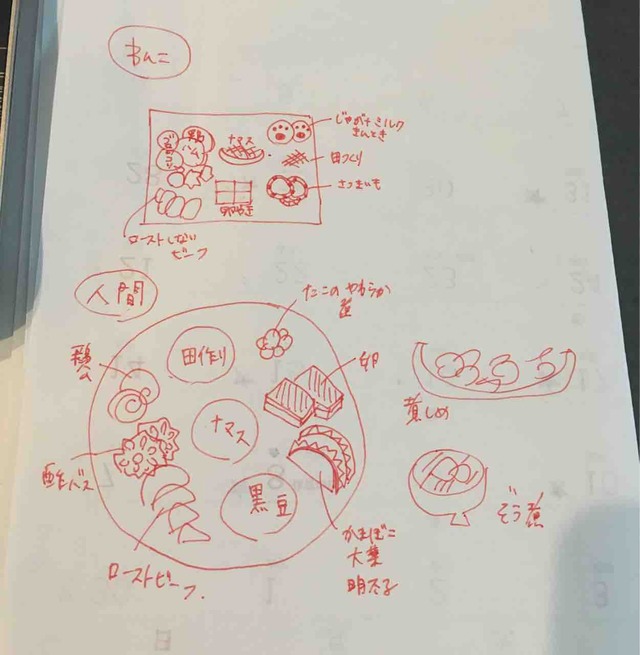 わんこ
鶏
ハム
ナマス
じゃがキミルク
きんとき
田つくり
さつまいも
卵やき
ローストしない
ビーフ
人間
たこのやわらか
煮
鶏
ハム
田作り
卵
ナマス
煮しめ
酢バス
黒豆
ぞう煮
ローストビーフ
かまぼこ
大葉
明太子